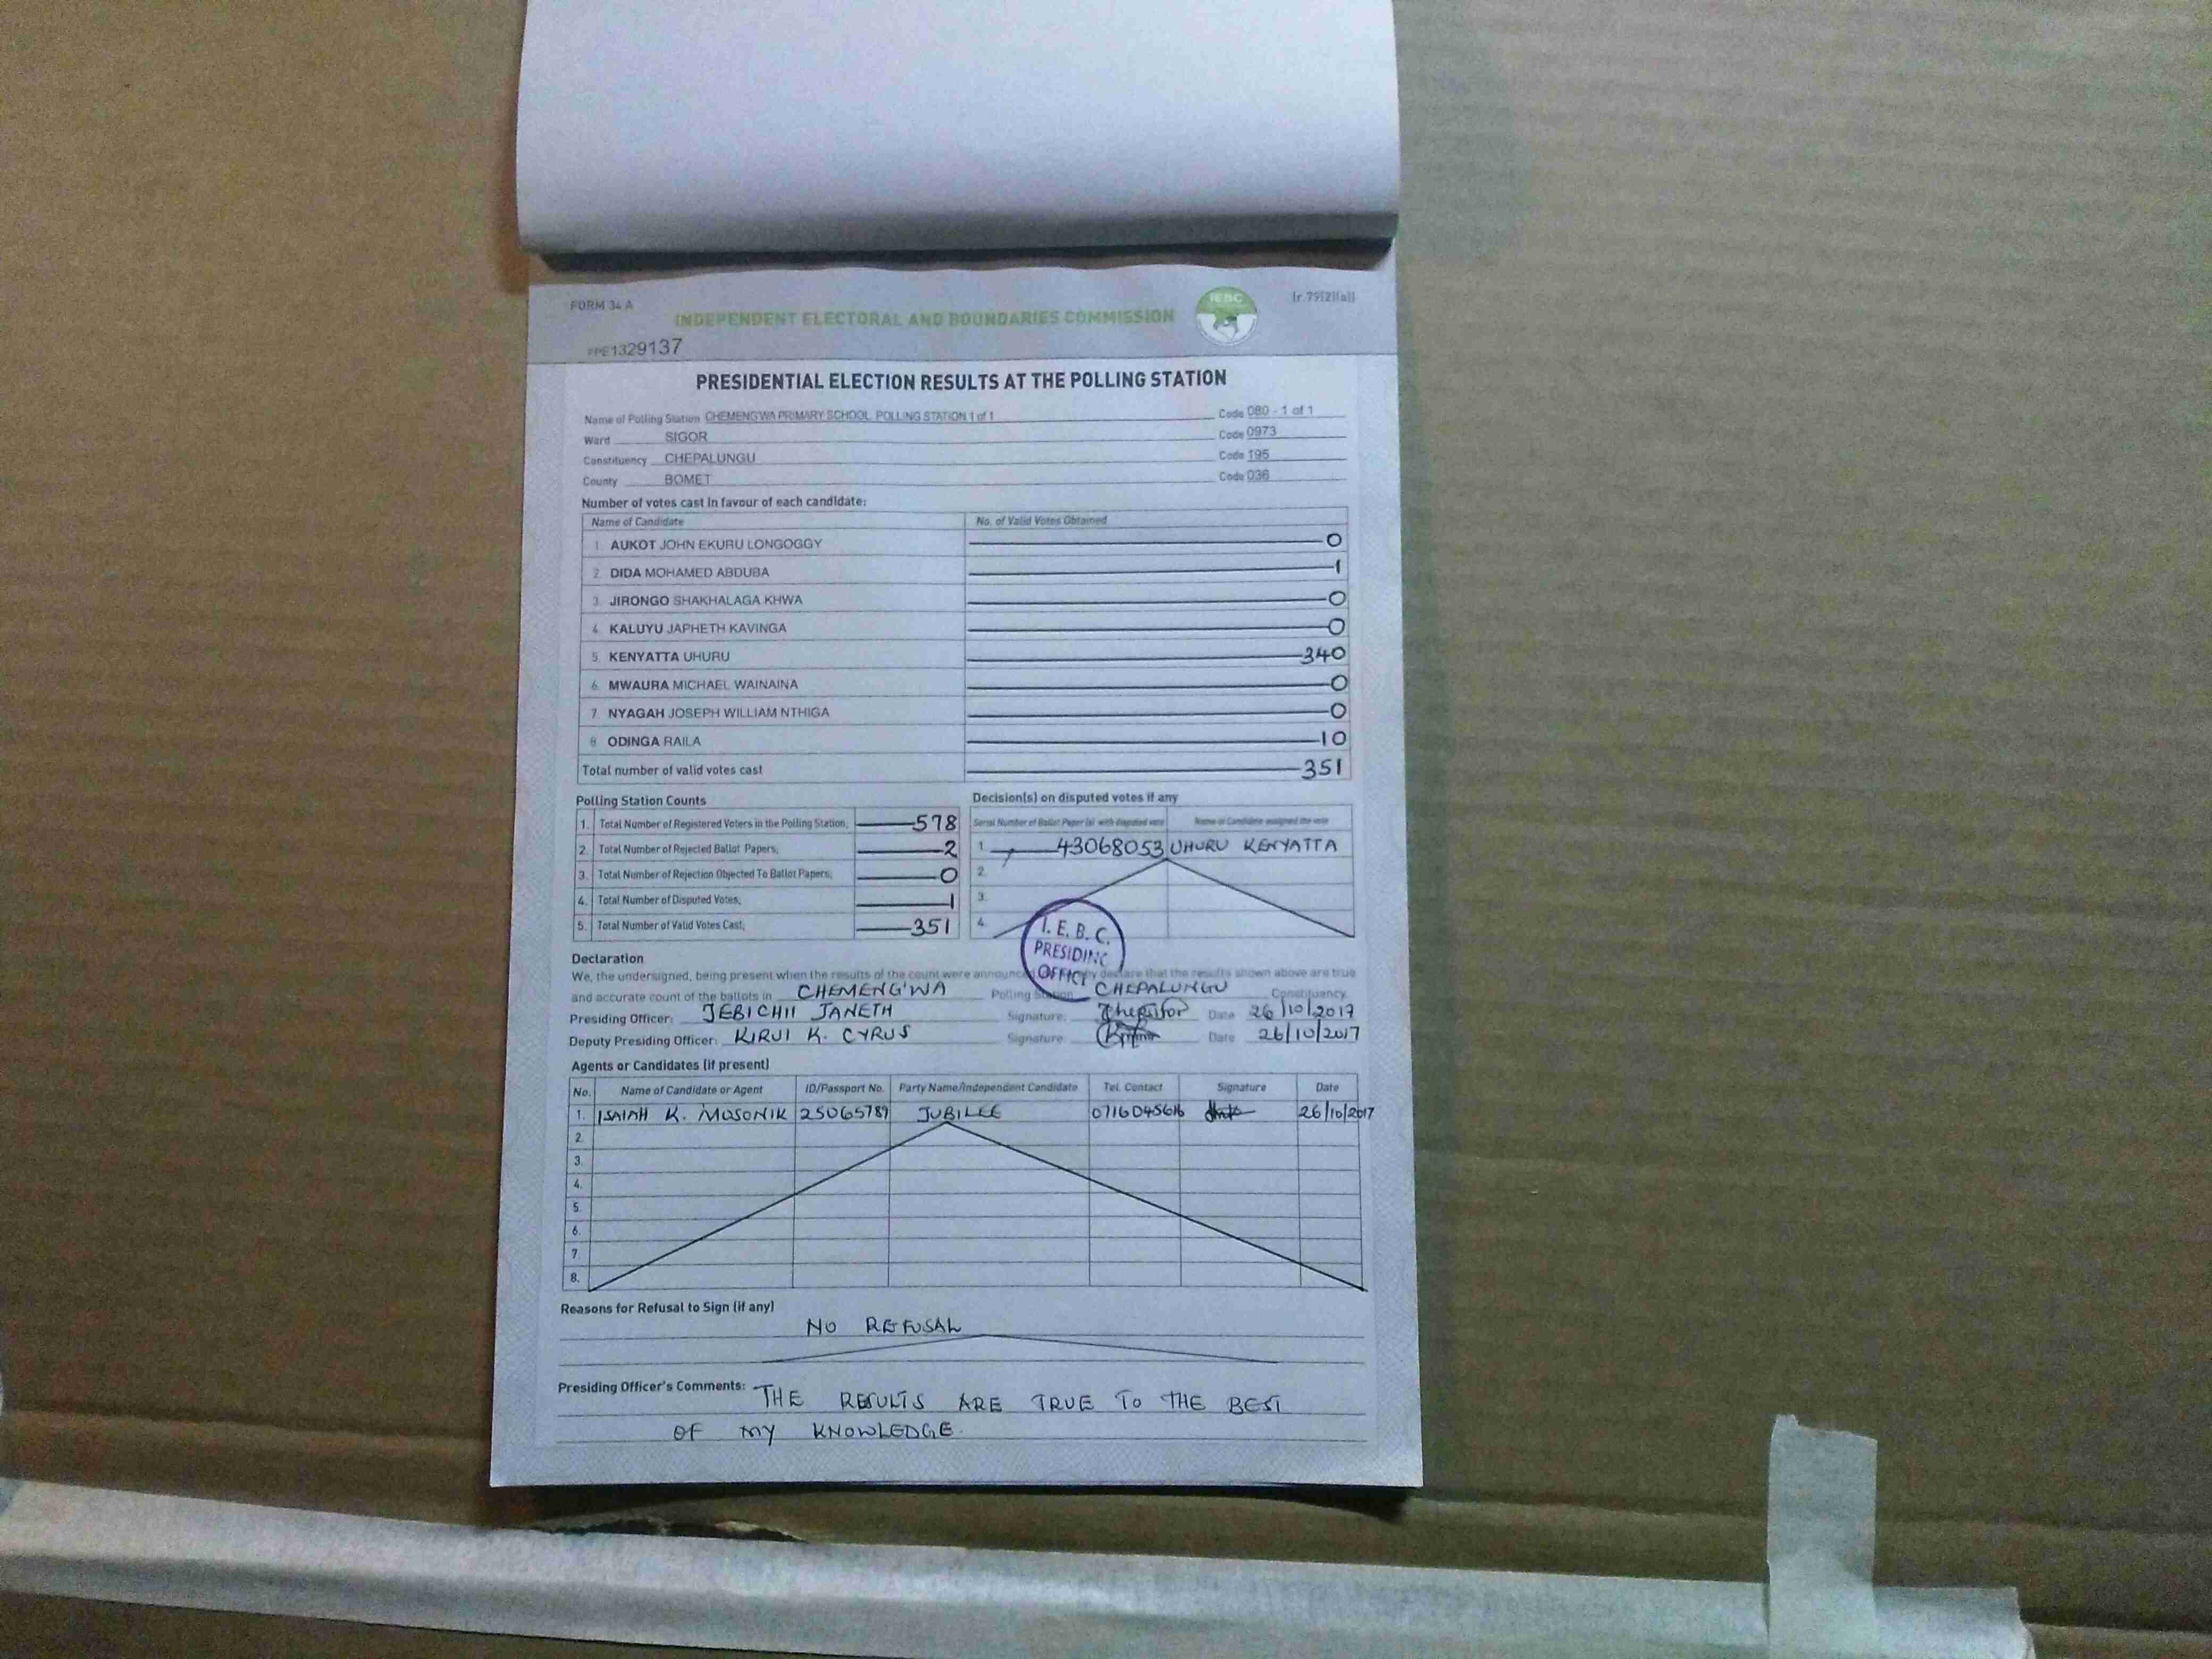 FORM 34 A
[r.79(2)(a)]
INDEPENDENT ELECTORAL AND BOUNDARIES COMMISSION
IEBC
#PE1329137
PRESIDENTIAL ELECTION RESULTS AT THE POLLING STATION
Name of Polling Station CHEMENGWA PRIMARY SCHOOL POLLING STATION 1 of 1 Code 080 - 1 of 1
Ward SIGOR Code 0973
Constituency CHEPALUNGU Code 195
County BOMET Code 036
Number of votes cast in favour of each candidate:
Name of Candidate No. of Valid Votes Obtained
1. AUKOT JOHN EKURU LONGOGGY 0
2. DIDA MOHAMED ABDUBA 1
3. JIRONGO SHAKHALAGA KHWA 0
4. KALUYU JAPHETH KAVINGA 0
5. KENYATTA UHURU 340
6. MWAURA MICHAEL WAINAINA 0
7. NYAGAH JOSEPH WILLIAM NTHIGA 0
8. ODINGA RAILA 10
Total number of valid votes cast 351
Polling Station Counts
1. Total Number of Registered Voters in the Polling Station, 578
2. Total Number of Rejected Ballot Papers, 2
3. Total Number of Rejection Objected To Ballot Papers, 0
4. Total Number of Disputed Votes, 1
5. Total Number of Valid Votes Cast, 351
Decision(s) on disputed votes if any
Serial Number of Ballot Paper (s) with disputed vote Name of Candidate assigned the vote
1. 43068053 UHURU KENYATTA
2.
3.
4.
I. E. B. C.
PRESIDING
OFFICE
Declaration
We, the undersigned, being present when the results of the count were announced, declare that the results shown above are true
and accurate count of the ballots in CHEMENG'WA Polling Station CHEPALUNGU Constituency.
Presiding Officer: JEBICHII JANETH Signature: Date 26/10/2017
Deputy Presiding Officer: KIRUI K. CYRUS Signature: Date 26/10/2017
Agents or Candidates (if present)
No. Name of Candidate or Agent ID/Passport No. Party Name/Independent Candidate Tel. Contact Signature Date
1. ISAIAH K. MOSONIK 25065789 JUBILEE 0716045616 26/10/2017
2.
3.
4.
5.
6.
7.
8.
Reasons for Refusal to Sign (if any)
NO REFUSAL
Presiding Officer's Comments: THE RESULTS ARE TRUE TO THE BEST
OF MY KNOWLEDGE.